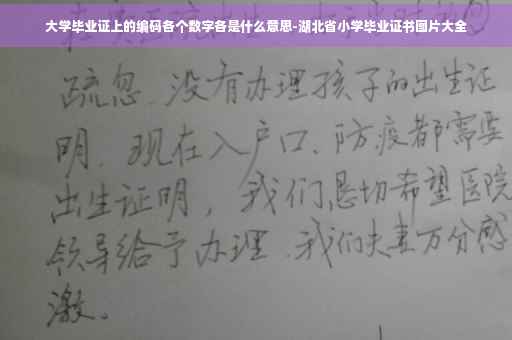 大学毕业证上的编码各个数字各是什么意思-湖北省小学毕业证书图片大全
疏忽、没有办理孩子的出生证
明、现在入户口、防疫都需要
出生证明，我们恳切希望医院
领导给予办理、我们夫妻万分感
激。